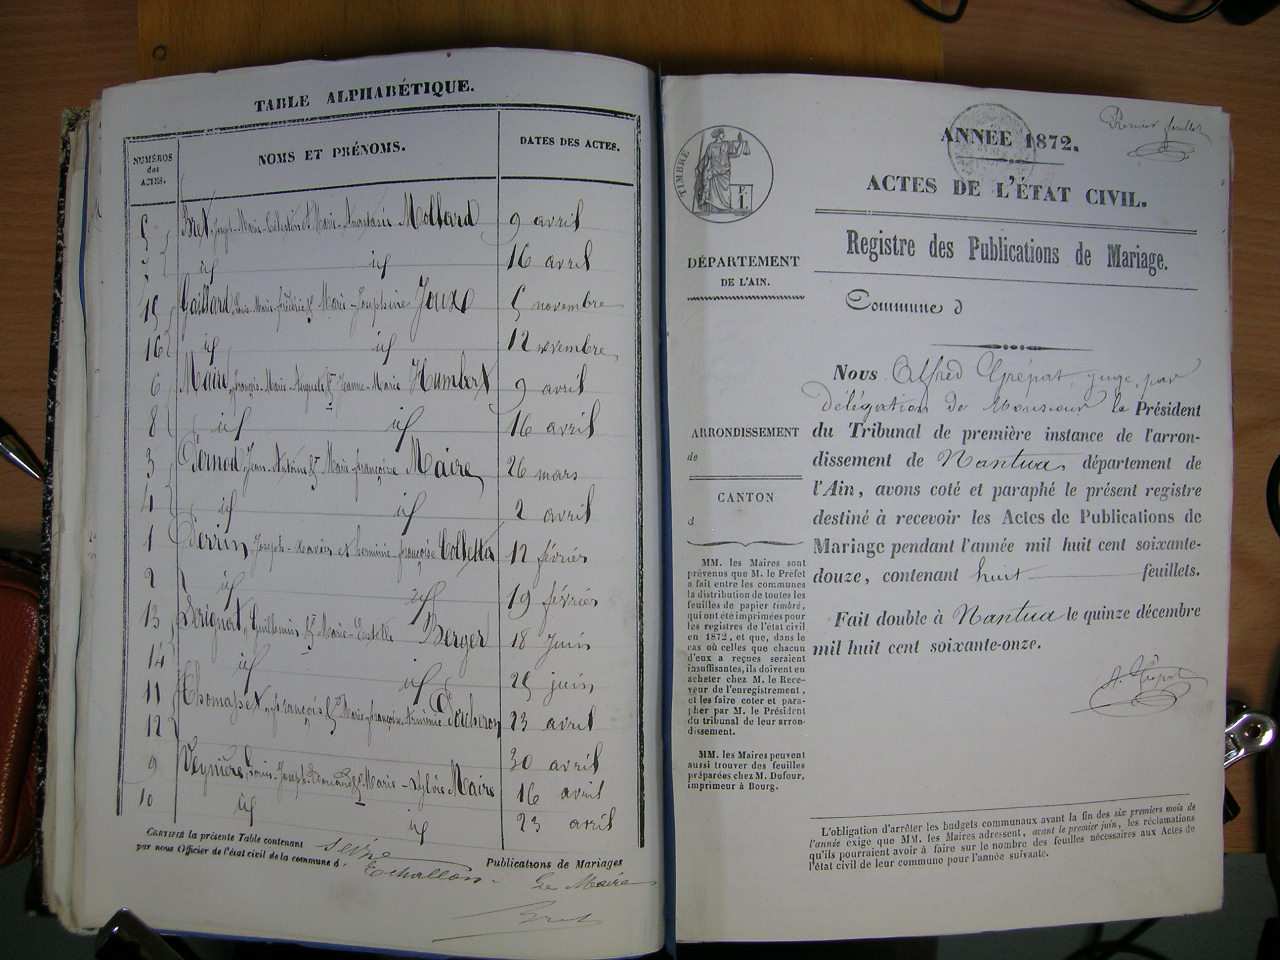 TABLE ALPHABÉTIQUE.
NUMÉROS
des
ACTES.
NOMS ET PRÉNOMS.
DATES DES ACTES.
5 Bret, Joseph-Marie-Célestin et Marie-Anastasie Mollard 9 avril
7 id id 16 avril
15 Gaillard, Marie-Frédéric & Marie-Josephine Joux 5 novembre
16 id id 12 novembre
6 Maire, François-Marie-Auguste & Jeanne-Marie Humbert 9 avril
8 id id 16 avril
3 Pernod, Jean Antoine & Marie françoise Maire 26 mars
4 id id 2 avril
1 Perrin, Joseph-Xavier et françoise Colletta 12 février
2 id id 19 février
13 Guillemin & Marie-Estelle Berger 18 Juin
14 id id 25 juin
11 Thomasset, françois & Marie-françoise Percheron 23 avril
12 30 avril
9 Veyrière, Louis-Joseph & Marie-Sylvie Maire 16 avril
10 id id 23 avril
CERTIFIÉ la présente Table contenant seize Publications de Mariages
par nous Officier de l'état civil de la commune d. Echallon. Le Maire
Bret
Premier feuillet
TIMBRE
ANNÉE 1872.
ACTES DE L'ÉTAT CIVIL.
Registre des Publications de Mariage.
DÉPARTEMENT
DE L'AIN.
Commune d
Nous Alfred Crépat, juge, par
délégation de Monsieur le Président
du Tribunal de première instance de l'arron-
dissement de Nantua, département de
l'Ain, avons coté et paraphé le présent registre
destiné à recevoir les Actes de Publications de
Mariage pendant l'année mil huit cent soixante-
douze, contenant huit feuillets.
Fait double à Nantua le quinze décembre
mil huit cent soixante-onze.
A. Crépat
ARRONDISSEMENT
de
CANTON
d
MM. les Maires sont
prévenus que M. le Préfet
a fait entre les communes
la distribution de toutes les
feuilles de papier timbré,
qui ont été imprimées pour
les registres de l'état civil
en 1872, et que, dans le
cas où celles que chacun
d'eux a reçues seraient
insuffisantes, ils doivent en
acheter chez M. le Rece-
veur de l'enregistrement,
et les faire coter et para-
pher par M. le Président
du tribunal de leur arron-
dissement.
MM. les Maires peuvent
aussi trouver des feuilles
préparées chez M. Dufour,
imprimeur à Bourg.
L'obligation d'arrêter les budgets communaux avant la fin des six premiers mois de
l'année exige que MM. les Maires adressent, avant le premier juin, les réclamations
qu'ils pourraient avoir à faire sur le nombre des feuilles nécessaires aux Actes de
l'état civil de leur commune pour l'année suivante.